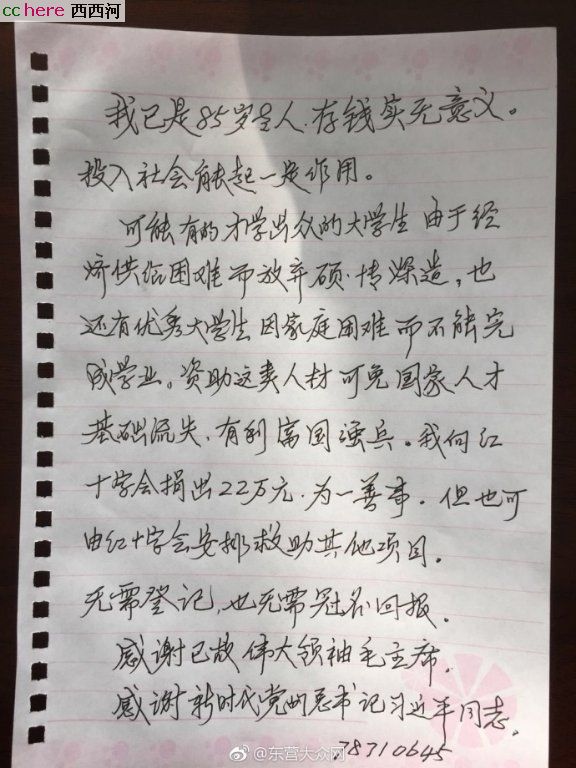 cchere 西西河
我已是85岁老人.存钱实无意义。
投入社会能起一定作用。
可能有的才学出众的大学生由于经
济供给困难而放弃硕.博深造,也
还有优秀大学生因家庭困难而不能完
成学业。资助这类人材可免国家人才
基础流失.有利富国强兵。我向红
十字会捐出22万元.为一善事.但也可
由红十字会安排救助其他项目。
无需登记,也无需冠名回报。
感谢已故伟大领袖毛主席.
感谢新时代党的总书记习近平同志。
78710645
@东营大众网